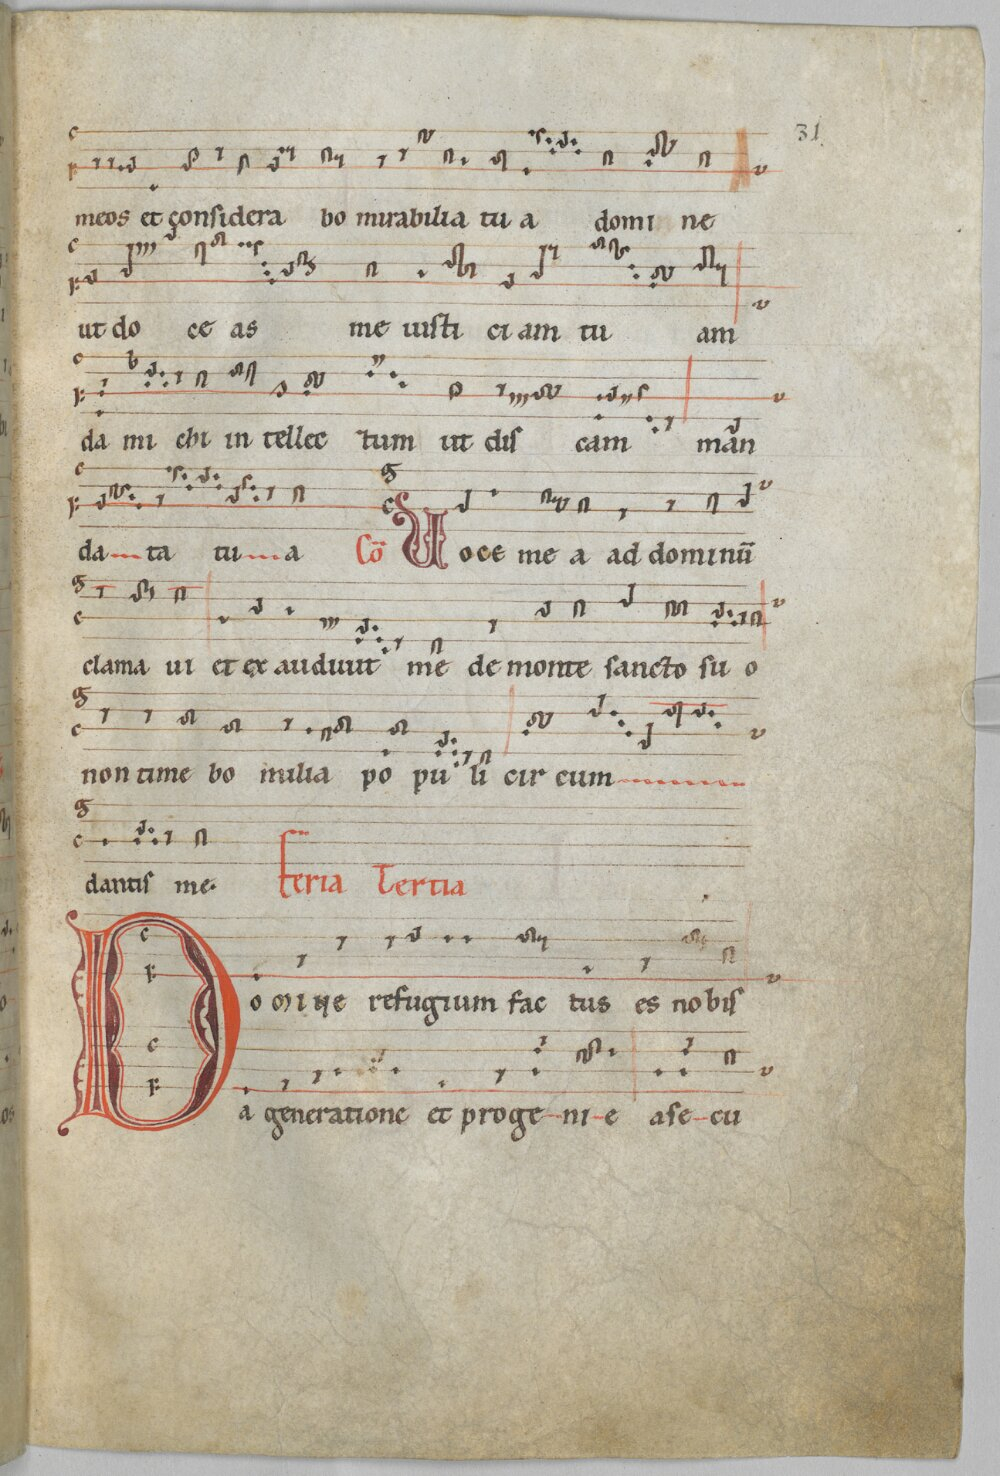 31
meos et considera bo mirabilia tu a domi ne
ut do ce as me iusti ci am tu am
da mi chi in tellec tum ut dis cam man
da ta tu a Cō Uoce me a ad dominū
clama ui et ex audiuit me de monte sancto su o
non time bo milia po pu li cir cum
dantis me.
feria Tertia
Domine refugium fac tus es nobis
a generatione et proge ni e ase cu